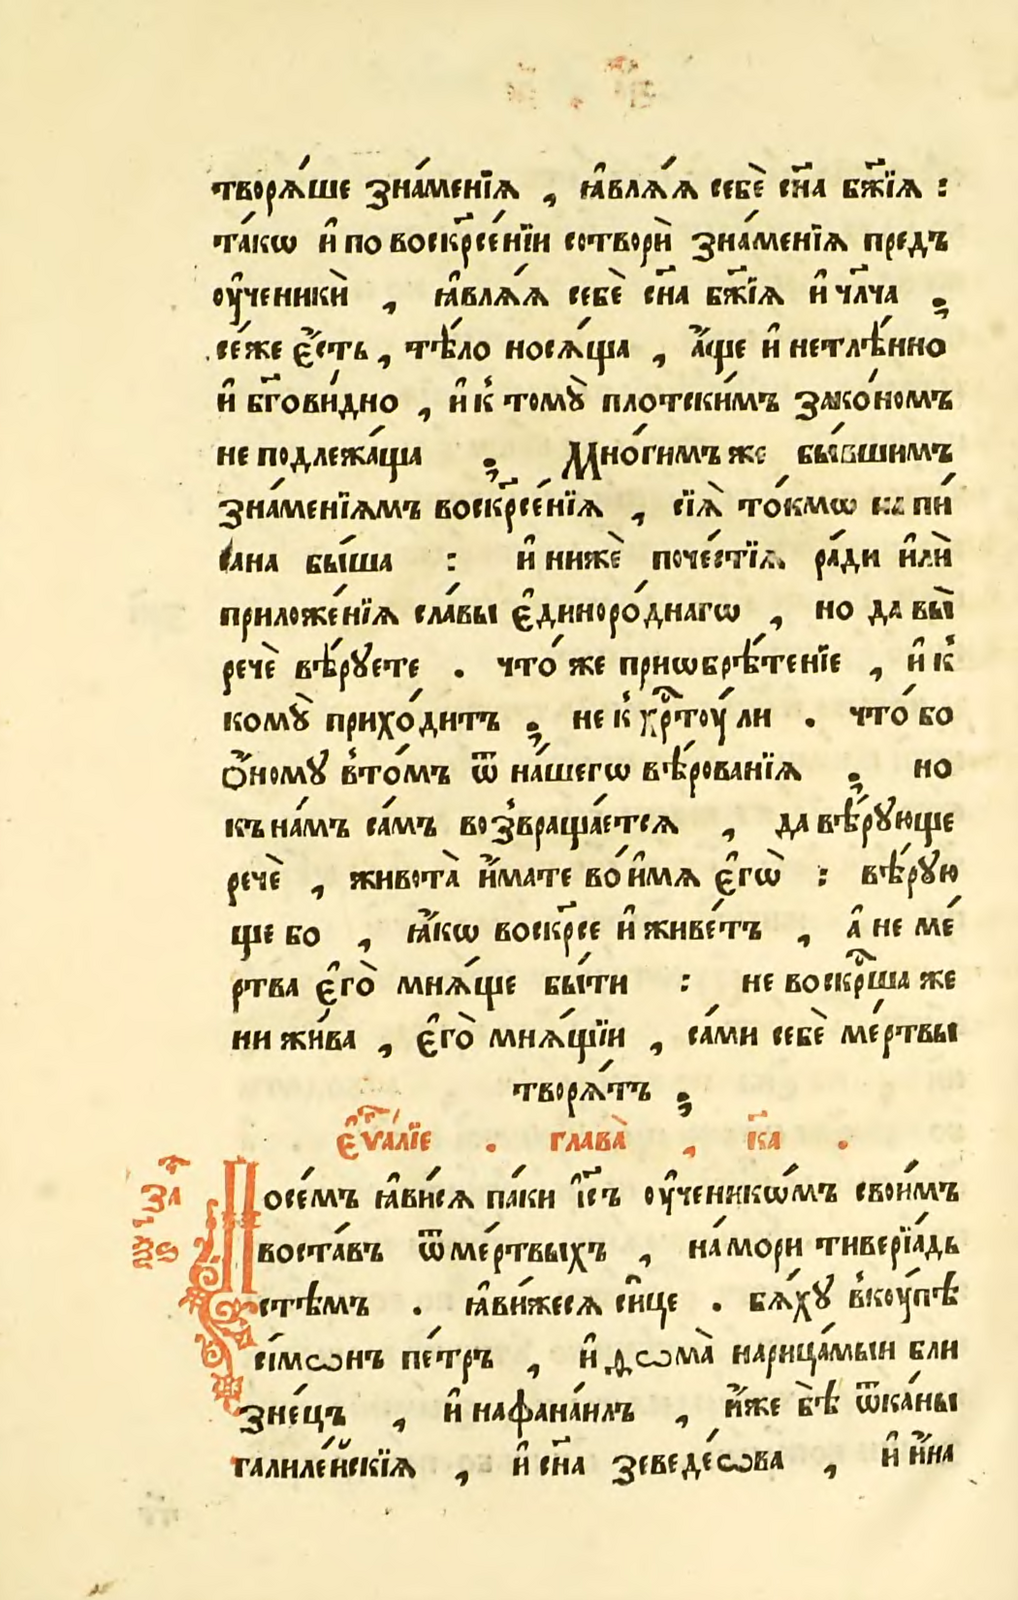 творѧ́ше зна́менїѧ , ꙗ҆влѧ́ѧ себѐ сн҃а бж҃їѧ :
та́кѡ и҆ по воскрⷭ҇е́нїи сотворѝ зна́менїѧ предъ
оу҆ченикѝ , ꙗ҆влѧ́ѧ себѐ сн҃а бж҃їѧ и҆ чл҃ча ;
се́же є҆́сть , тѣ́ло носѧ́ща , а҆́ще и҆ нетлѣ́нно
и҆ бг҃ови́дно , и҆ к̾ томꙋ̀ плотски́мъ зако́номъ
не подлежа́ща ; Мно́гимъ же бы́вшимъ
зна́менїѧмъ воскрⷭ҇е́нїѧ , сїѧ̀ то́кмѡ на пи́
сана бы́ша : и҆ нижѐ поче́стїѧ ра́ди и҆лѝ
приложе́нїѧ сла́вы є҆диноро́днагѡ , но да вы̀
речѐ вѣ́рꙋете . что́ же приѡбрѣ́тенїе , и҆ к̾
комꙋ̀ прихо́дитъ ; не к̾ хрⷭ҇тоу́ ли . что́ бо
о҆́номꙋ в̾то́мъ ѿ на́шегѡ вѣ́рованїѧ ; но
къ на́мъ са́мъ воз̾враща́етсѧ , да вѣ́рꙋюще
речѐ , живота̀ и҆́мате во и҆́мѧ є҆гѡ̀ : вѣ́рꙋю
ще бо , ꙗ҆́кѡ воскрⷭ҇е и҆ живе́тъ , а҆ не ме́
ртва є҆го̀ мнѧ́ще бы́ти : не воскрⷭ҇ша же
ни жи́ва , є҆го̀ мнѧ́щїи , са́ми себѐ ме́ртвы
творѧ́тъ ;
є҆ѵⷢ҇а́лїе . глава̀ , к҃а .
за҃
По се́мъ ꙗ҆ви́сѧ па́ки і҆с҃ъ оу҆ченикѡ́мъ свои́мъ
воста́въ ѿ ме́ртвыхъ , на мори тиверїа́дь
стѣмъ . ꙗ҆ви́жесѧ си́це . бѧ́хꙋ в̾коу́пѣ
сі́мѡнъ пе́тръ , и҆ ѳѡма̀ нарица́мыи бли
зне́цъ , и҆ наѳана́илъ , и҆́же бѣ̀ ѿ ка́ны
галиле́йскїѧ , и҆ сн҃а зеведе́ѡва , и҆ и҆́на